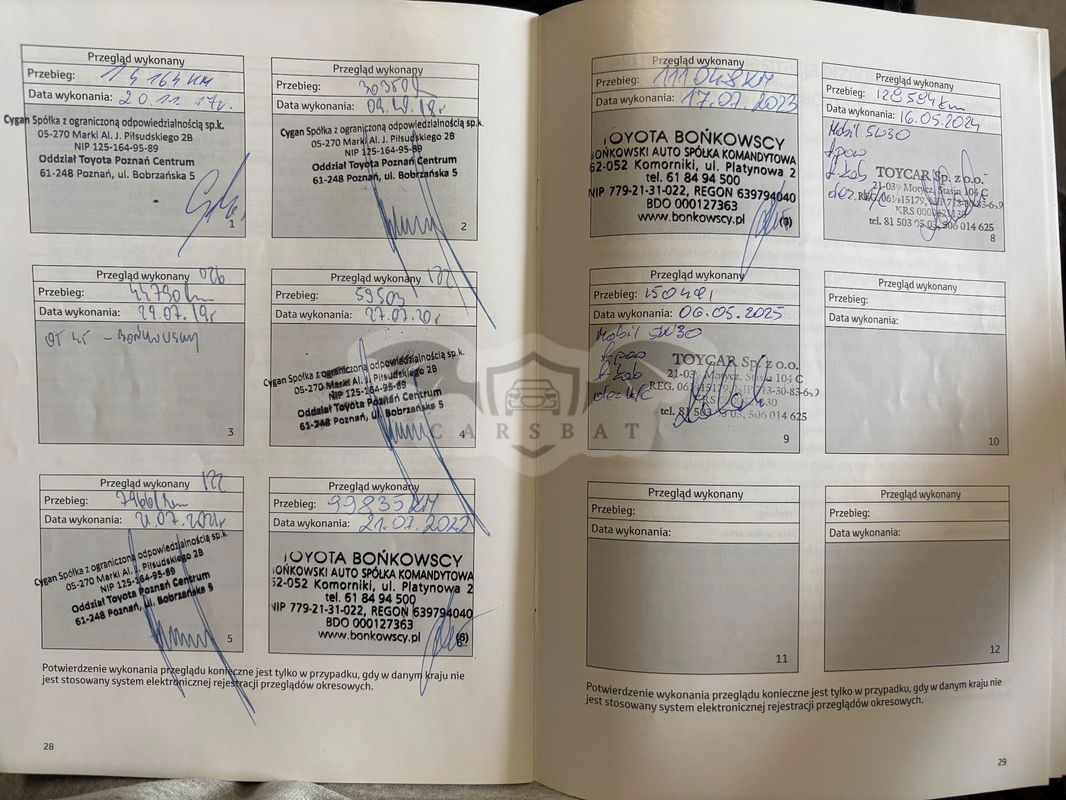 Przegląd wykonany
Przebieg: 14 164 KM
Data wykonania: 20.11.17r.
Cygan Spółka z ograniczoną odpowiedzialnością sp.k.
05-270 Marki Al. J. Piłsudskiego 2B
NIP 125-164-95-89
Oddział Toyota Poznań Centrum
61-248 Poznań, ul. Bobrzańska 5
1
Przegląd wykonany
Przebieg: 30350
Data wykonania:
Cygan Spółka z ograniczoną odpowiedzialnością sp.k.
05-270 Marki Al. J. Piłsudskiego 2B
NIP 125-164-95-89
Oddział Toyota Poznań Centrum
61-248 Poznań, ul. Bobrzańska 5
2
Przegląd wykonany
Przebieg: 44790 km
Data wykonania: 29.07.19r
3
Przegląd wykonany
Przebieg: 59503
Data wykonania: 27.07.20r
Cygan Spółka z ograniczoną odpowiedzialnością sp.k.
05-270 Marki Al. J. Piłsudskiego 2B
NIP 125-164-95-89
Oddział Toyota Poznań Centrum
61-248 Poznań, ul. Bobrzańska 5
4
Przegląd wykonany
Przebieg:
Data wykonania: 21.07.2021r
Cygan Spółka z ograniczoną odpowiedzialnością sp.k.
05-270 Marki Al. J. Piłsudskiego 2B
NIP 125-164-95-89
Oddział Toyota Poznań Centrum
61-248 Poznań, ul. Bobrzańska 5
5
Przegląd wykonany
Przebieg: 99835 KM
Data wykonania: 21.07.2022
TOYOTA BOŃKOWSCY
BOŃKOWSKI AUTO SPÓŁKA KOMANDYTOWA
62-052 Komorniki, ul. Platynowa 2
tel. 61 84 94 500
NIP 779-21-31-022, REGON 639794040
BDO 000127363
www.bonkowscy.pl (6)
6
Potwierdzenie wykonania przeglądu konieczne jest tylko w przypadku, gdy w danym kraju nie
jest stosowany system elektronicznej rejestracji przeglądów okresowych.
28
Przegląd wykonany
Przebieg: 111048 KM
Data wykonania: 17.07.2023
TOYOTA BOŃKOWSCY
BOŃKOWSKI AUTO SPÓŁKA KOMANDYTOWA
62-052 Komorniki, ul. Platynowa 2
tel. 61 84 94 500
NIP 779-21-31-022, REGON 639794040
BDO 000127363
www.bonkowscy.pl (6)
Przegląd wykonany
Przebieg: 128594 km
Data wykonania: 16.05.2024
Mobil 5W30
TOYCAR Sp. z o.o.
21-03 Motycz, Stasin 104 C
tel. 81 503 05 03, 506 014 625
8
Przegląd wykonany
Przebieg: 150481
Data wykonania: 06.05.2025
Mobil 5W30
TOYCAR Sp. z o.o.
21-03 Motycz, Stasin 104 C
tel. 81 503 05 03, 506 014 625
9
Przegląd wykonany
Przebieg:
Data wykonania:
10
Przegląd wykonany
Przebieg:
Data wykonania:
11
Przegląd wykonany
Przebieg:
Data wykonania:
12
Potwierdzenie wykonania przeglądu konieczne jest tylko w przypadku, gdy w danym kraju nie
jest stosowany system elektronicznej rejestracji przeglądów okresowych.
29
CARSBAT